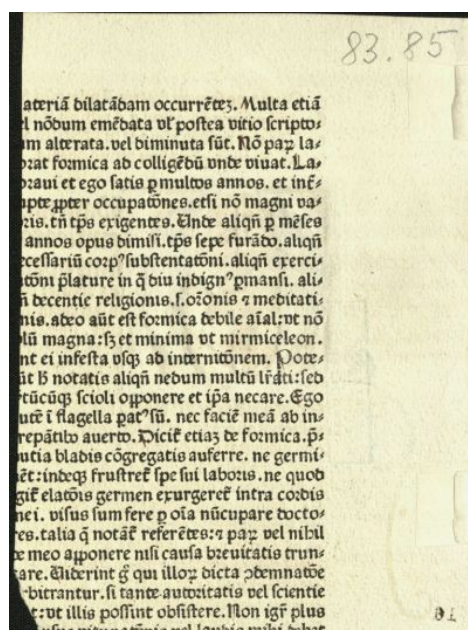 83.85
ateriā dilatādam occurrētez. Multa etiā
el nōdum emēdata vl' postea vitio scripto⸗
um alterata. vel diminuta sūt. Nō paꝝ la⸗
orat formica ad colligēdū vnde viuat. La⸗
oraui et ego satis ꝑ multos annos. et int̄⸗
upte ꝓpter occupatōnes. etsi nō magni va⸗
oris. tn̄ tp̄s exigentes. Unde aliqn̄ ꝑ mēses
annos opus dimisi. tp̄s sepe furādo. aliqn̄
ecessariū corpꝰ substentatōni. aliqn̄ exerci⸗
atōni p̄lature in q̄ diu indignꝰ ꝑmansi. ali⸗
n̄ decentie religionis. s. or̄onis ⁊ meditati⸗
nis. adeo aūt est formica debile aīal: vt nō
olū magna: sꝫ et minima vt mirmiceleon.
nt ei infesta vsqꝫ ad internitōnem. Pote⸗
ūt h̄ notatis aliqn̄ nedum multū lr̄ati: sed
tūcūqꝫ scioli opponere et ip̄a necare. Ego
utē ī flagella ꝑatꝰ sū. nec faciē meā ab in⸗
repātibꝰ auerto. Dicit̄ etiaꝫ de formica. p̄⸗
utia bladis cōgregatis auferre. ne germi⸗
ēt: indeqꝫ frustret̄ spe sui laboris. ne quod
git̄ elatōis germen exurgeret̄ intra cordis
mei. visus sum fere ꝑ oīa nūcupare docto⸗
res. talia q̄ notāt̄ referētes: ⁊ paꝝ vel nihil
de meo apponere nisi causa breuitatis trun⸗
care. Uiderint g̊ qui illoꝝ dicta ꝯdemnatōe
rbitrantur. si tante autoritatis vel scientie
t: vt illis possint obsistere. Non igr̄ plus